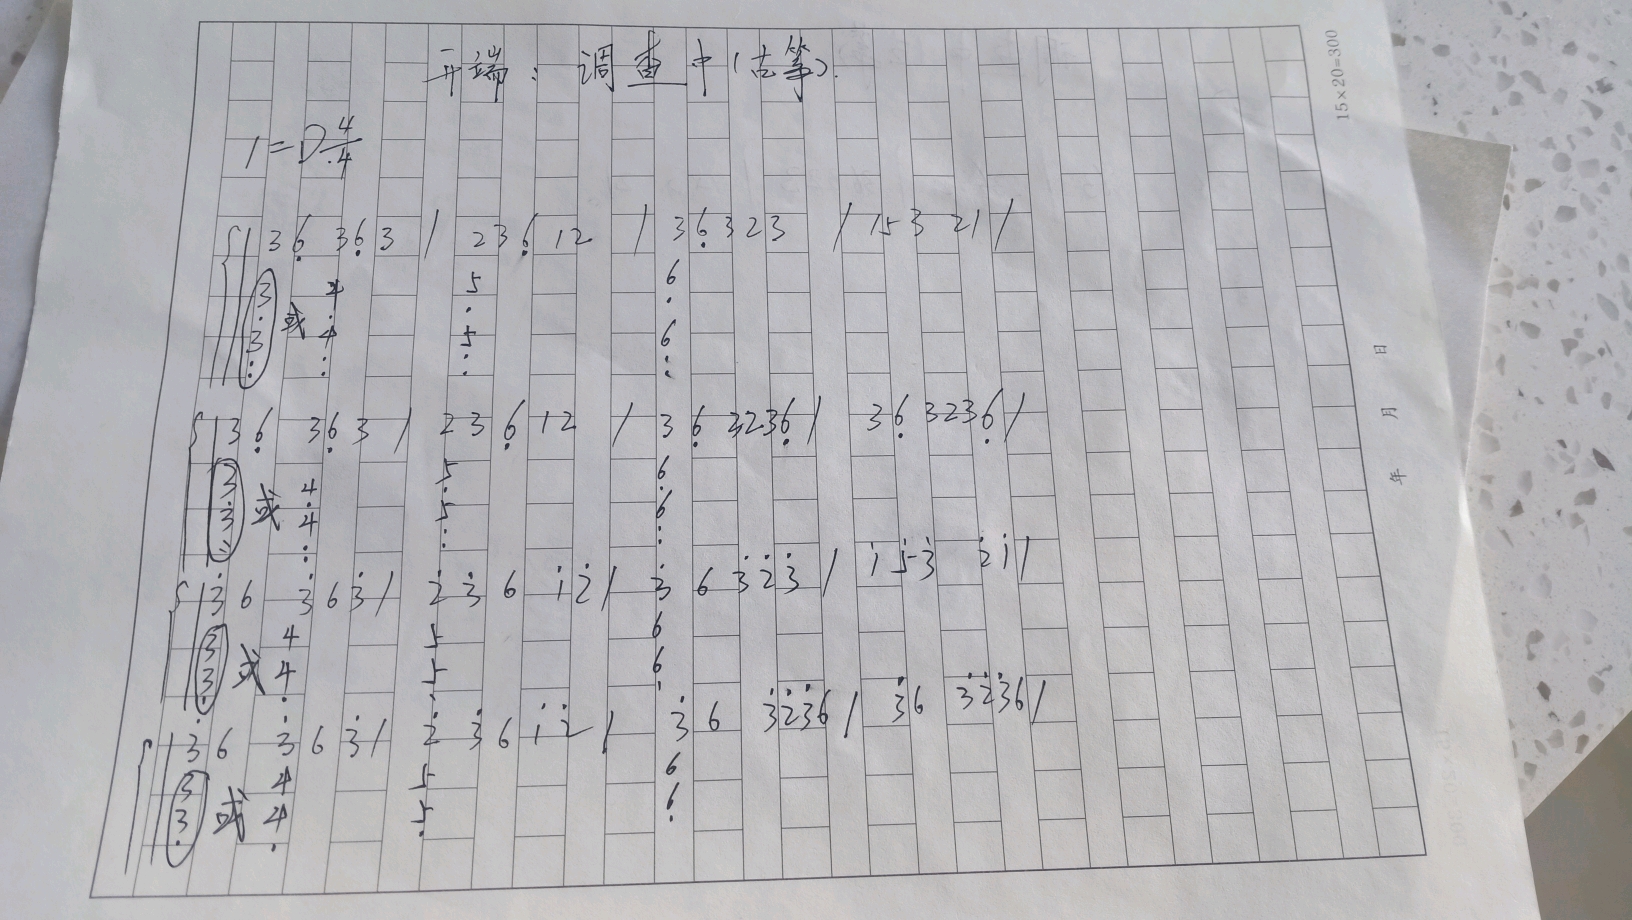 开端：调查中（古筝）.
1=D 4/4
3 6̣ 3 6̣ 3 | 2 3 6̣ 1 2 | 3 6̣ 3 2 3 | 1 5 3 2 1 |
3 或 4 5 6
3 4 5 6
3 6̣ 3 6̣ 3 | 2 3 6̣ 1 2 | 3 6̣ 3 2 3 6̣ | 3 6̣ 3 2 3 6̣ |
3 或 4 5 6
3 4 5 6
3̇ 6 3̇ 6 3̇ | 2̇ 3̇ 6 1̇ 2̇ | 3̇ 6 3̇ 2̇ 3̇ | 1̇ 5̇ 3̇ 2̇ 1̇ |
3 或 4 5 6
3 4 5 6
3̇ 6 3̇ 6 3̇ | 2̇ 3̇ 6 1̇ 2̇ | 3̇ 6 3̇ 2̇ 3̇ 6 | 3̇ 6 3̇ 2̇ 3̇ 6 |
3 或 4 5 6
3 4 5 6
15×20=300
年 月 日